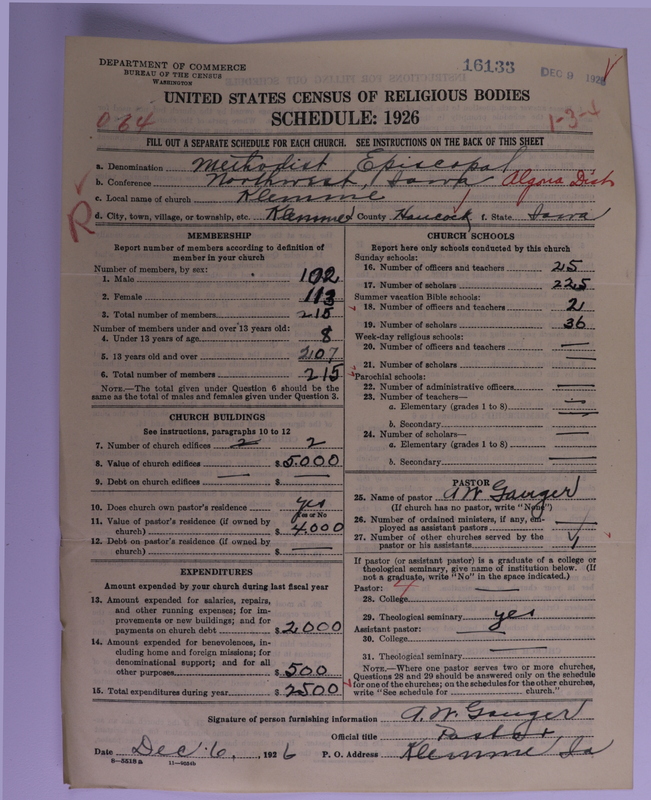 DEPARTMENT OF COMMERCE
BUREAU OF THE CENSUS
WASHINGTON
16133
DEC 9 1926
UNITED STATES CENSUS OF RELIGIOUS BODIES
SCHEDULE: 1926
064
1-3-4
FILL OUT A SEPARATE SCHEDULE FOR EACH CHURCH. SEE INSTRUCTIONS ON THE BACK OF THIS SHEET
a. Denomination Methodist Episcopal
b. Conference Northwest, Iowa Algona Dist
c. Local name of church Klemme
d. City, town, village, or township, etc. Klemme County Hancock f. State Iowa
R
MEMBERSHIP
Report number of members according to definition of
member in your church
Number of members, by sex:
1. Male 102
2. Female 113
3. Total number of members 215
Number of members under and over 13 years old:
4. Under 13 years of age 8
5. 13 years old and over 207
6. Total number of members 215
NOTE.—The total given under Question 6 should be the
same as the total of males and females given under Question 3.
CHURCH BUILDINGS
See instructions, paragraphs 10 to 12
7. Number of church edifices 2 2
8. Value of church edifices $5000
9. Debt on church edifices — $ —
10. Does church own pastor's residence? yes
Yes or No
11. Value of pastor's residence (if owned by
church) $4000
12. Debt on pastor's residence (if owned by
church) $ —
EXPENDITURES
Amount expended by your church during last fiscal year
13. Amount expended for salaries, repairs,
and other running expenses; for im-
provements or new buildings; and for
payments on church debt $2000
14. Amount expended for benevolences, in-
cluding home and foreign missions; for
denominational support; and for all
other purposes $500
15. Total expenditures during year $2500
CHURCH SCHOOLS
Report here only schools conducted by this church
Sunday schools:
16. Number of officers and teachers 25
17. Number of scholars 225
Summer vacation Bible schools:
18. Number of officers and teachers 2
19. Number of scholars 36
Week-day religious schools:
20. Number of officers and teachers —
21. Number of scholars —
Parochial schools:
22. Number of administrative officers —
23. Number of teachers—
a. Elementary (grades 1 to 8) —
b. Secondary —
24. Number of scholars—
a. Elementary (grades 1 to 8) —
b. Secondary —
PASTOR
25. Name of pastor A. W. Gauger
(If church has no pastor, write "None")
26. Number of ordained ministers, if any, em-
ployed as assistant pastors —
27. Number of other churches served by the
pastor or his assistants 1
If pastor (or assistant pastor) is a graduate of a college or
theological seminary, give name of institution below. (If
not a graduate, write "No" in the space indicated.)
Pastor:
28. College —
29. Theological seminary yes
Assistant pastor:
30. College —
31. Theological seminary —
NOTE.—Where one pastor serves two or more churches,
Questions 28 and 29 should be answered only on the schedule
for one of the churches; on the schedules for the other churches,
write "See schedule for church."
Signature of person furnishing information A. W. Gauger
Official title Pastor
Date Dec. 6, 1926 P. O. Address Klemme Ia
8—5518 a 11—9034b